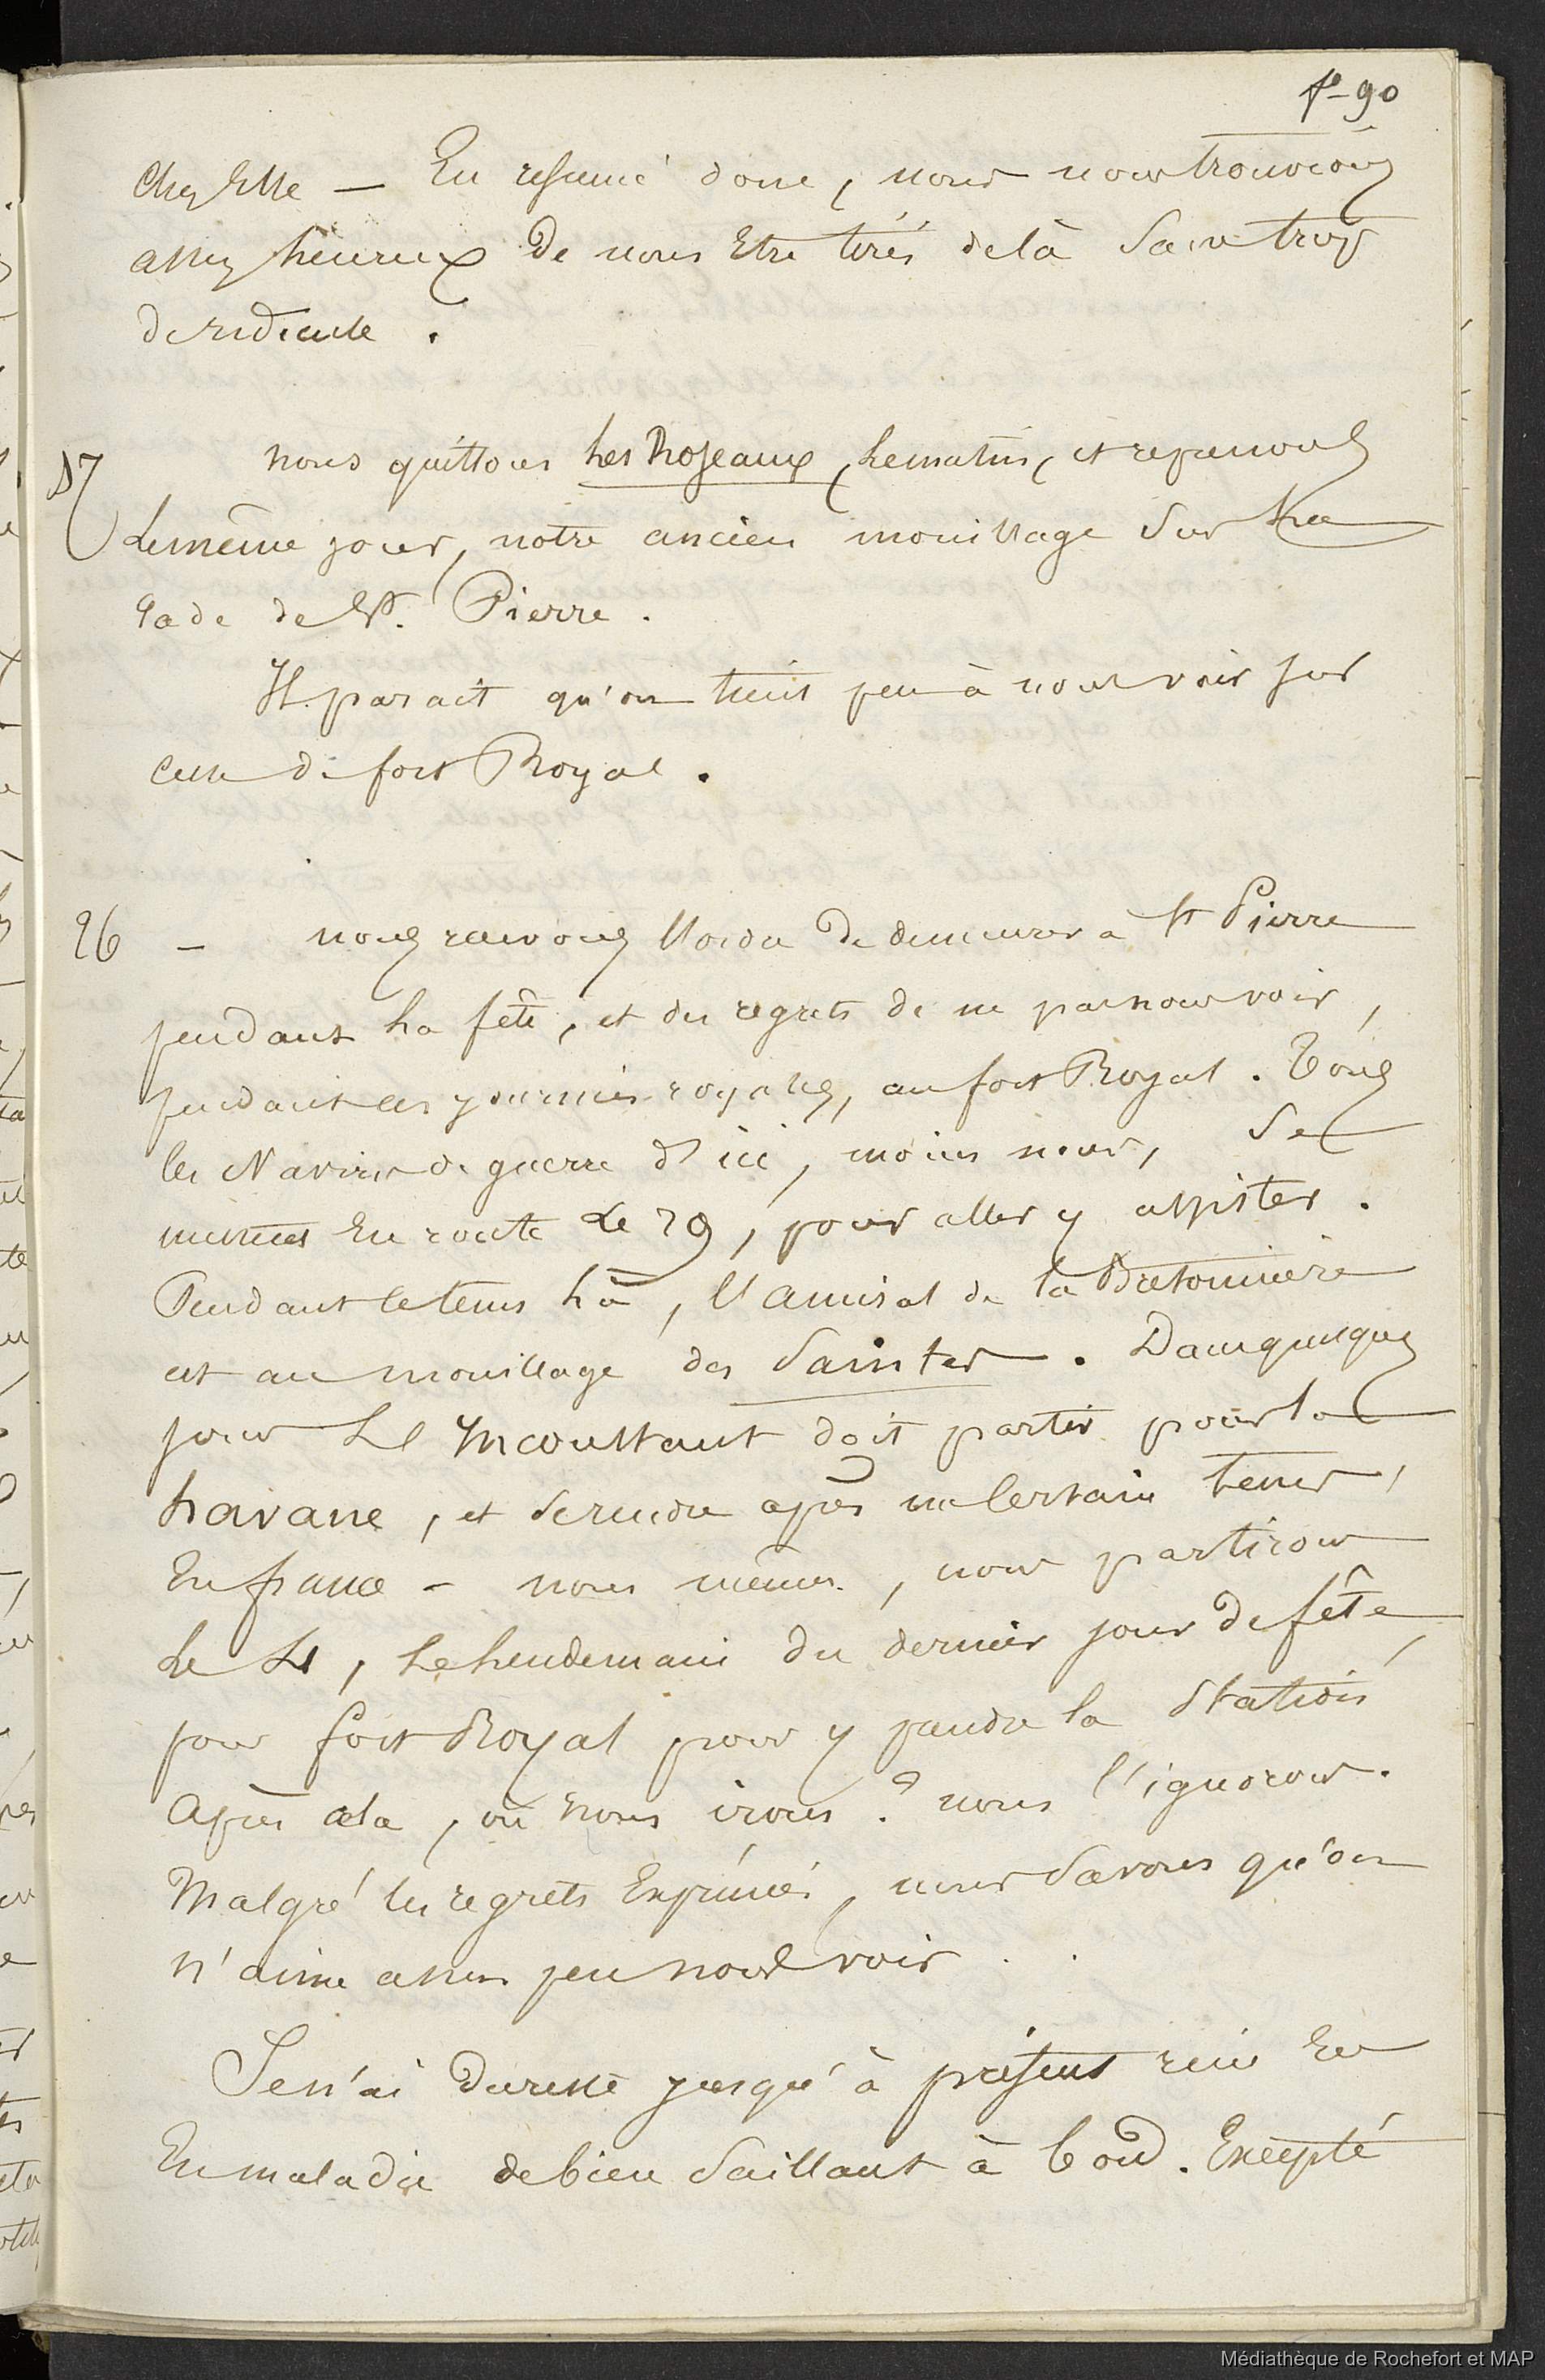 f° 90
chez Elle — En resumé donc, nous nous trouvions
assez heureux De nous Etre tirés delà Sans trop
de ridicule.
17 nous quittons Les Rozeaux, Le matin, et reprenons
Le même jour, notre ancien mouillage Sur La
rade de St. Pierre.
Il parait qu'on tient peu à nous voir sur
celle de fort Royal.
26 — nous recevons l'ordre De demeurer à St Pierre
pendant La fête, et des regrets de ne pas nous voir,
pendant ces journées royales, au fort Royal. Tous
les Navires de guerre d'ici, moins nous, Se
mettent En route Le 29, pour aller y assister.
Pendant le tems Là, l'amiral de la Bretonnière
est au mouillage des Saintes. Dans quelques
jours L'Inconstant doit partir pour la
havane, et Se rendre après un Certain tems,
En france — nous mêmes, nous partirons
Le 4, Le Lendemain du dernier jour De fête,
pour fort Royal pour y prendre la Station
Après cela, où nous irons? nous l'ignorons.
Malgré les regrets Exprimés, nous Savons qu'on
n'aime assez peu nous voir.
Je n'ai Du reste jusqu'à présent rien Eu
En maladie de bien Saillant à bord. Excepté
Médiathèque de Rochefort et MAP